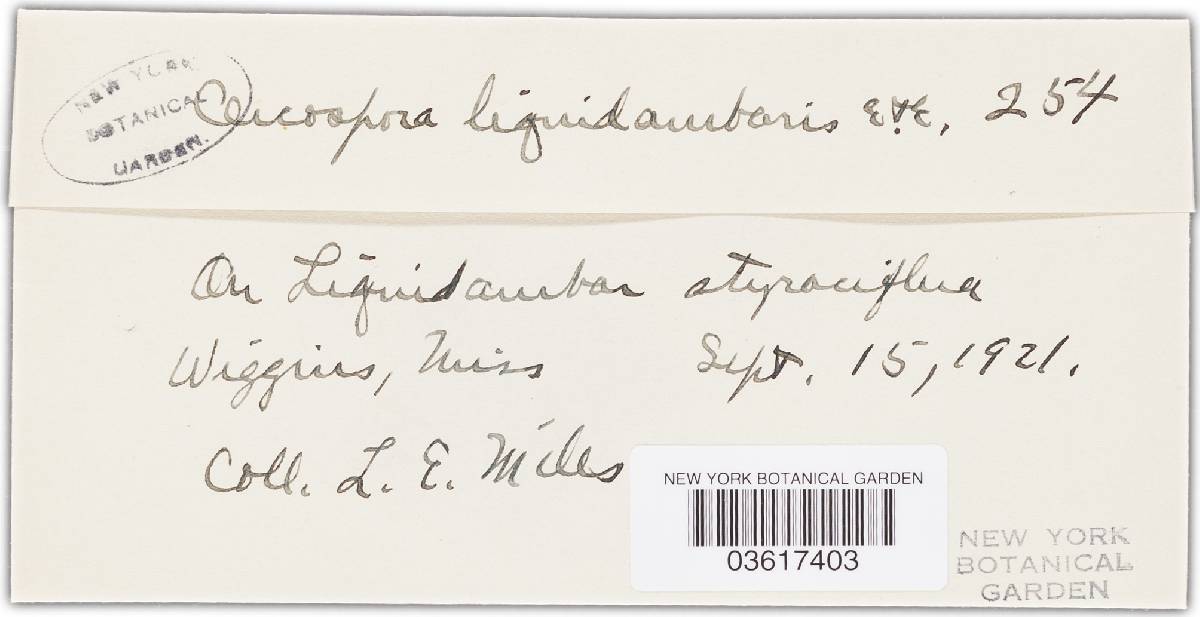 NEW YORK
BOTANICAL
GARDEN.
Cercospora liquidambaris E&E, 254
On Liquidambar styraciflua
Wiggins, Miss Sept. 15, 1921.
Coll. L. E. Miles
NEW YORK BOTANICAL GARDEN
03617403
NEW YORK
BOTANICAL
GARDEN